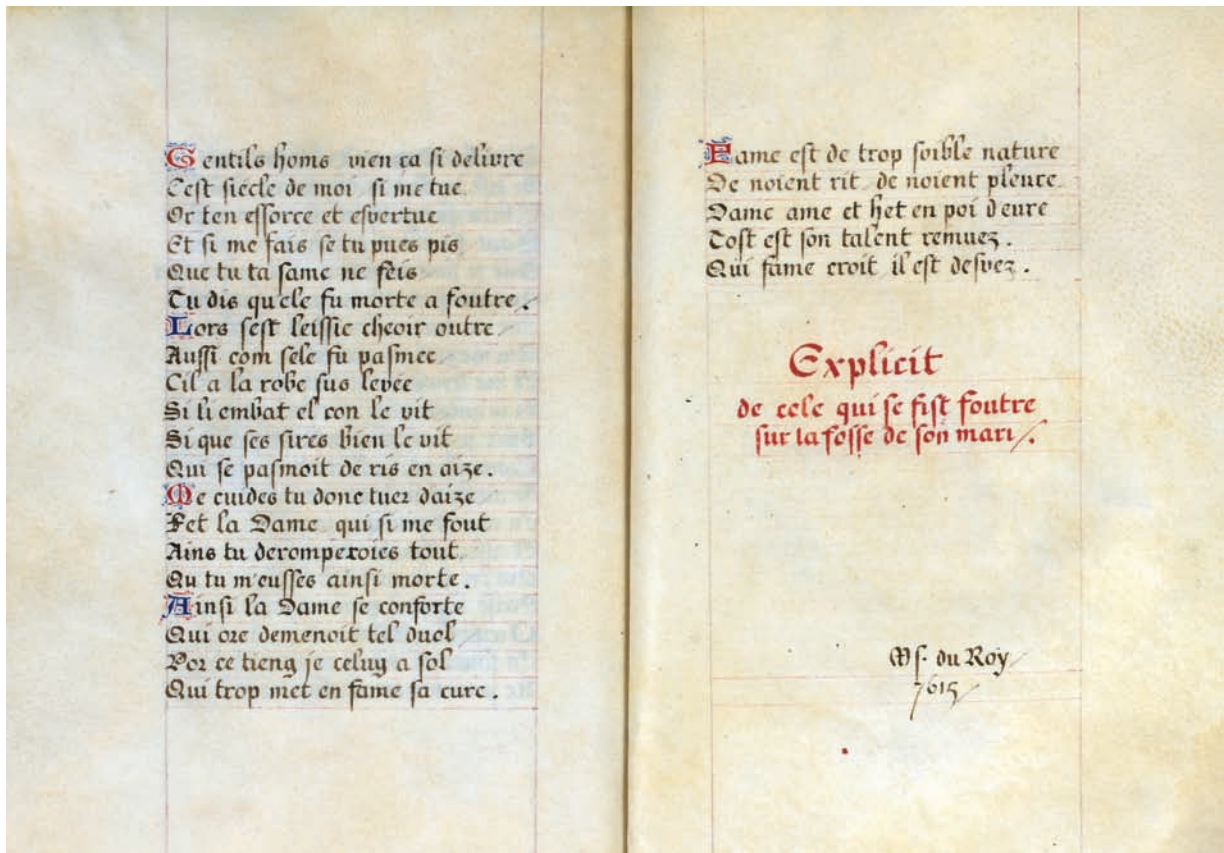 Gentils homs vien ca si delivre
Cest siecle de moi si me tue
Or ten efforce et esvertue
Et si me fais se tu pues pis
Que tu ta fame ne feis
Tu dis qu'ele fu morte a foutre.
Lors sest leissie cheoir outre
Aussi com sele fu pasmee
Cil a la robe sus levee
Si li embat el con le vit
Si que ses sires bien le vit
Qui se pasmoit de ris en aize.
Me cuides tu donc tuer daize
Fet la Dame qui si me fout
Ains tu deromperoies tout
Qu tu m'eusses ainsi morte.
Ainsi la Dame se conforte
Qui ore demenoit tel duol
Por ce tieng je celuy a fol
Qui trop met en fame sa cure.
Fame est de trop foible nature
De noient rit de noient pleure
Dame ame et het en poi d'eure
Tost est son talent remuez.
Qui fame croit il est desvez.
Explicit
de cele qui se fist foutre
sur la fosse de son mari.
Ms. du Roy
7615